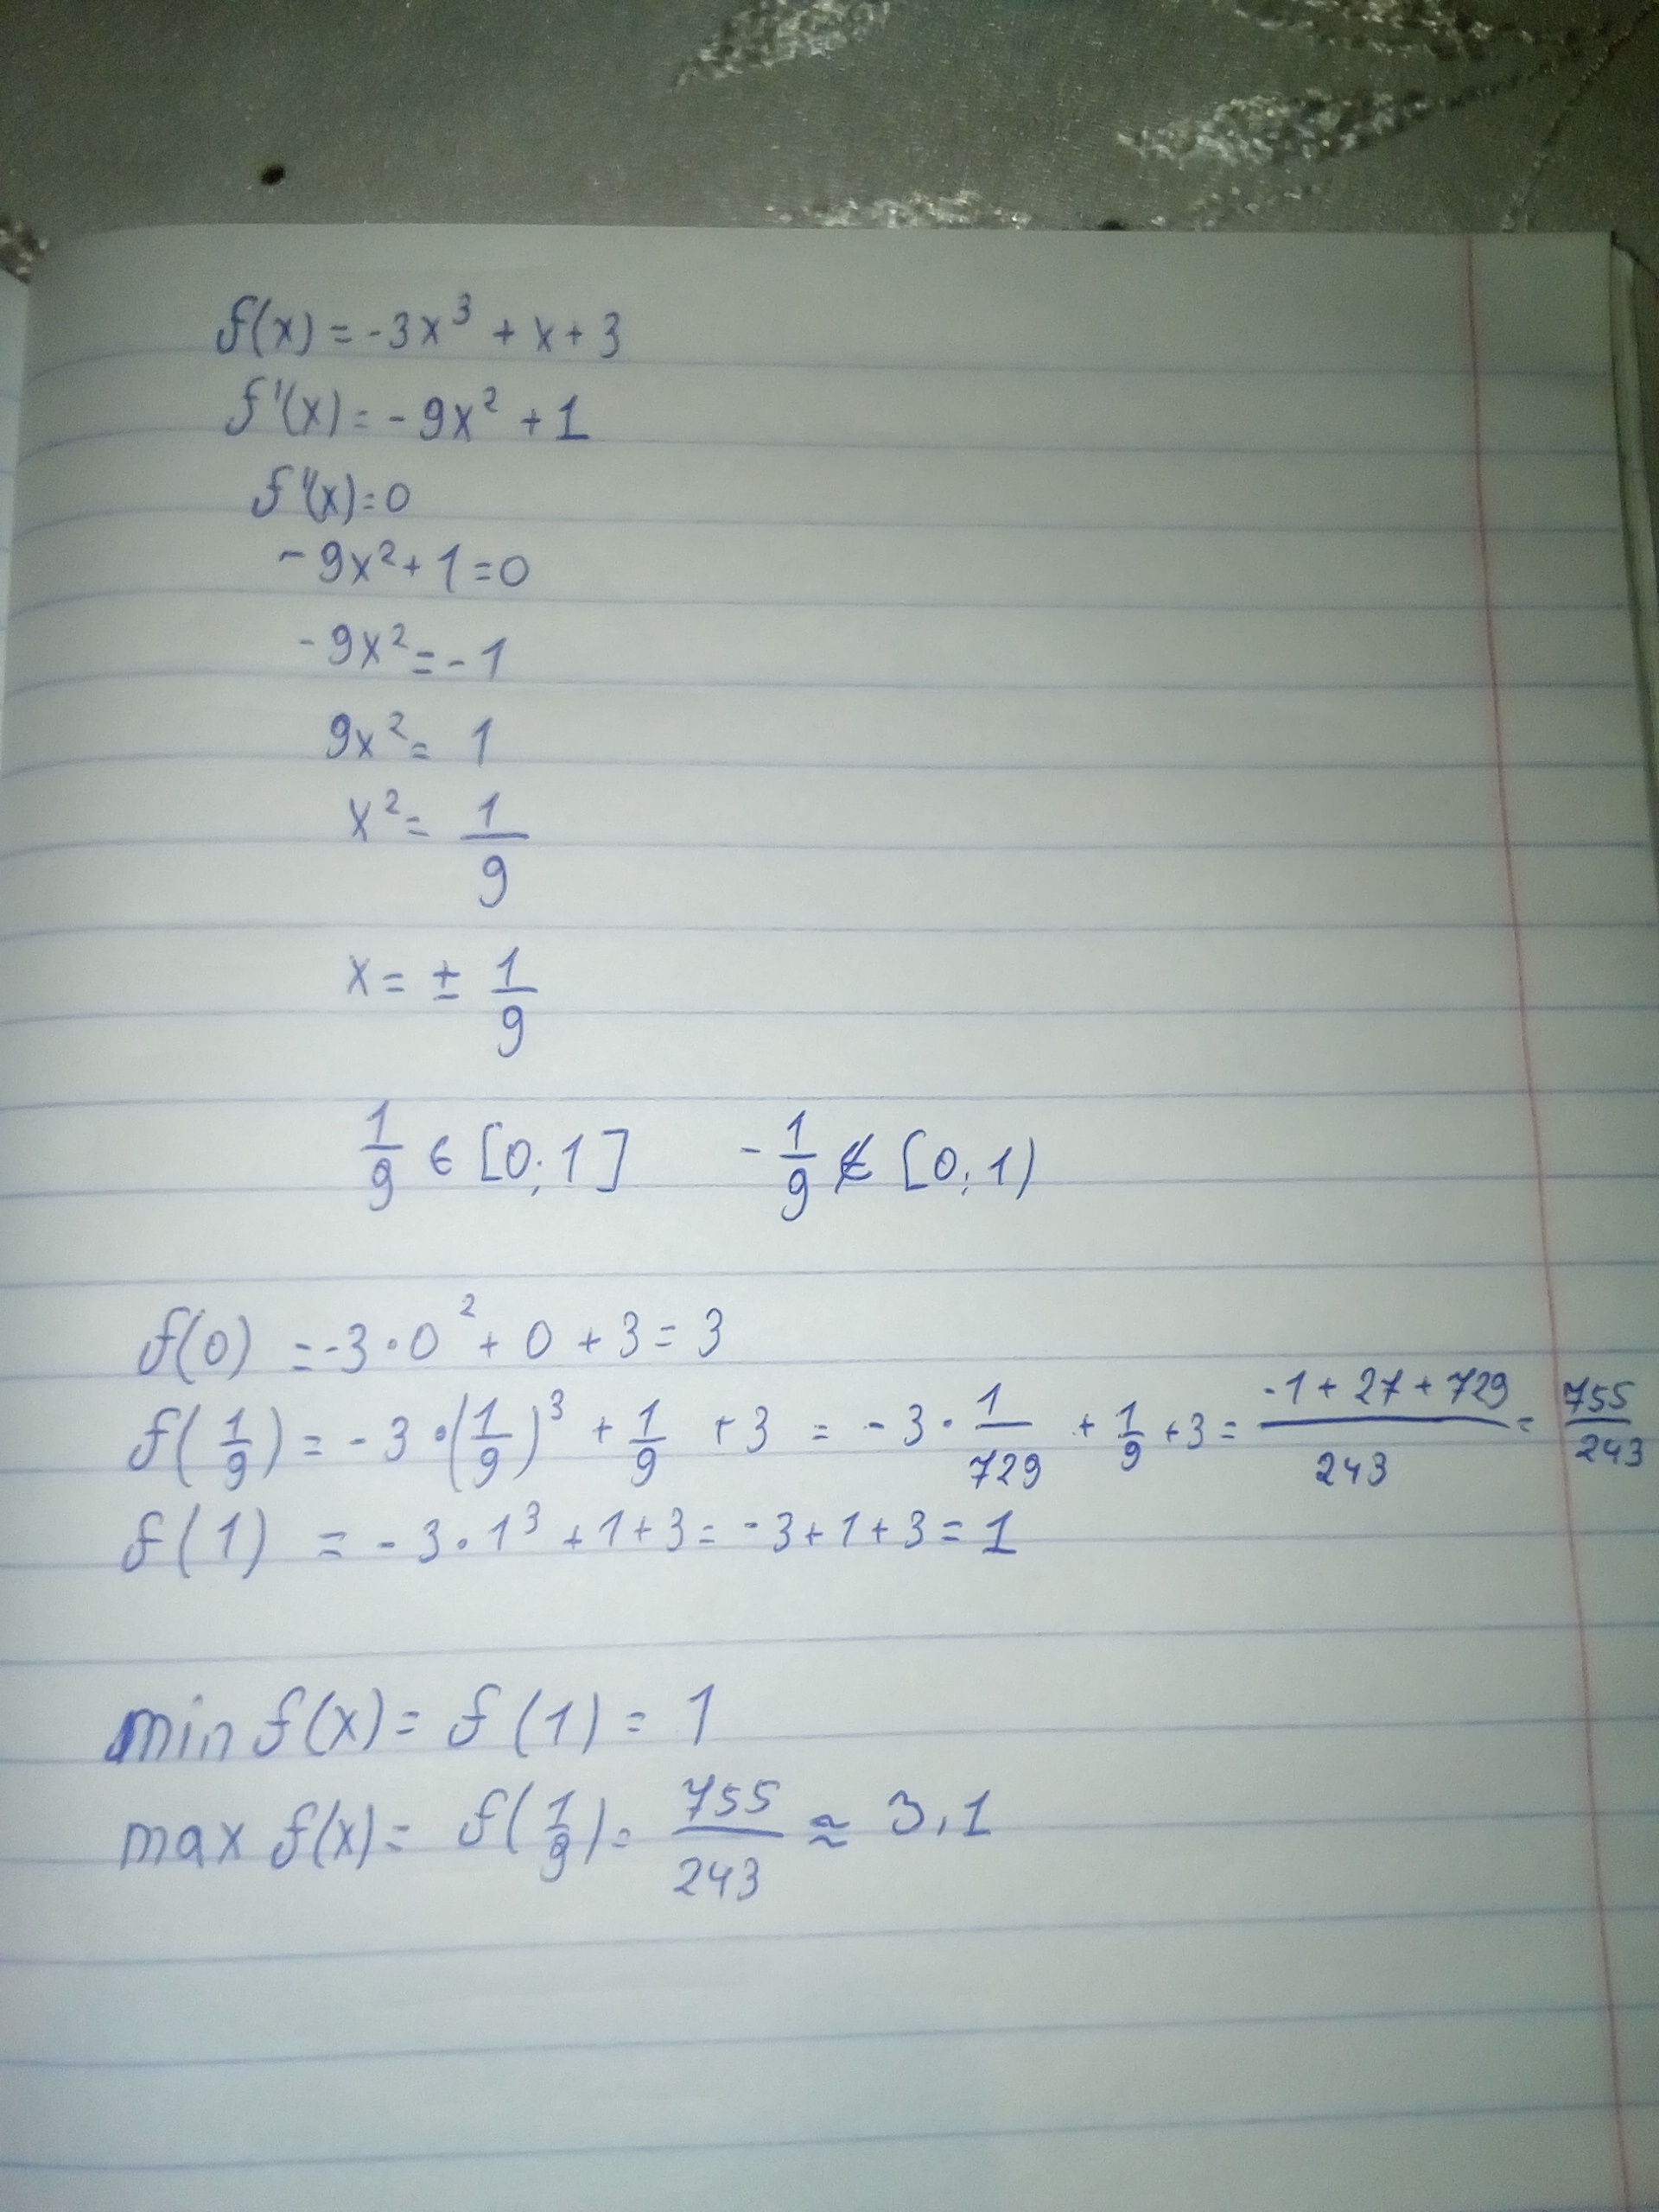 f(x) = -3x³ + x + 3
f'(x) = -9x² + 1
f'(x) = 0
-9x² + 1 = 0
-9x² = -1
9x² = 1
x² = 1/9
x = ± 1/9
1/9 ∈ [0; 1] -1/9 ∉ [0; 1)
f(0) = -3·0² + 0 + 3 = 3
f(1/9) = -3·(1/9)³ + 1/9 + 3 = -3·1/729 + 1/9 + 3 = (-1 + 27 + 729)/243 = 755/243
f(1) = -3·1³ + 1 + 3 = -3 + 1 + 3 = 1
min f(x) = f(1) = 1
max f(x) = f(1/9) = 755/243 ≈ 3,1